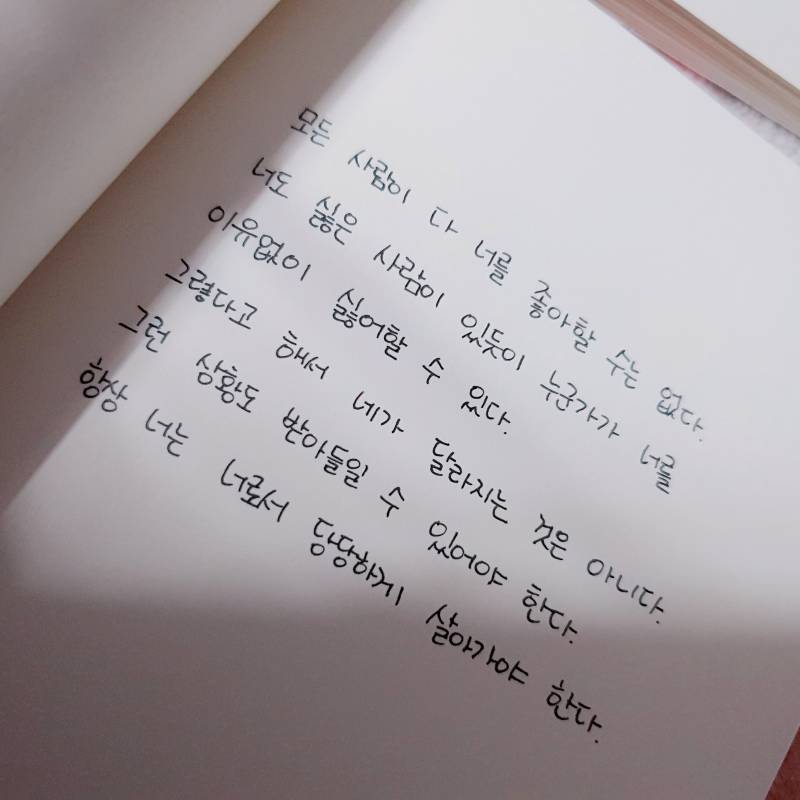 모든 사람이 다 너를 좋아할 수는 없다.
너도 싫은 사람이 있듯이 누군가가 너를
이유없이 싫어할 수 있다.
그렇다고 해서 네가 달라지는 것은 아니다.
그런 상황도 받아들일 수 있어야 한다.
항상 너는 너로서 당당하게 살아가야 한다.